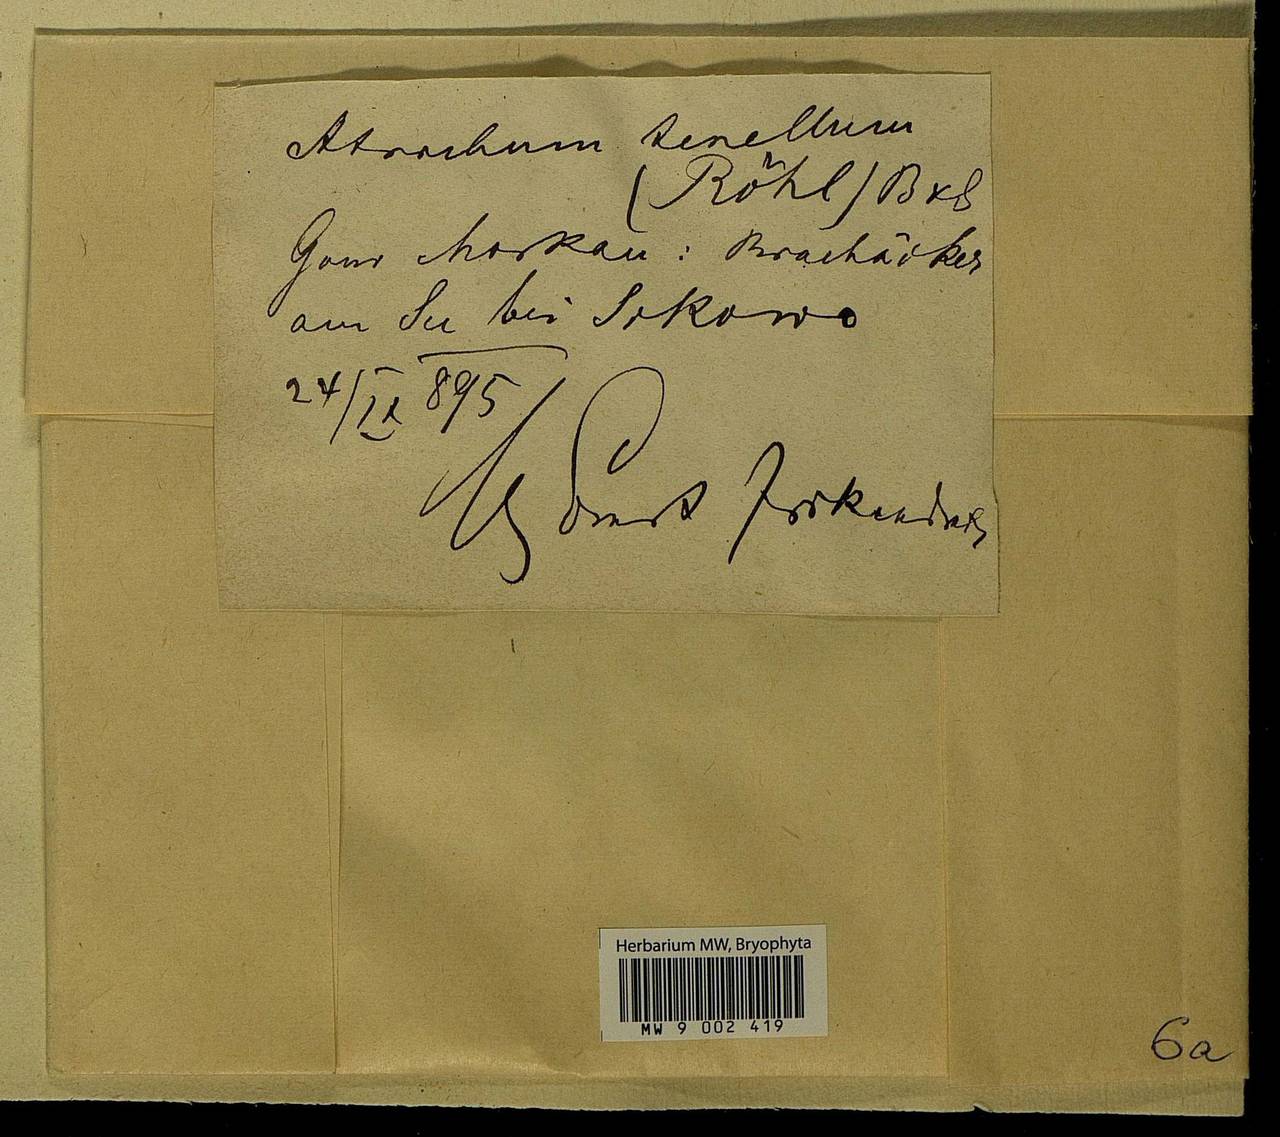 Atrichum tenellum
(Röhl) B &
Gouv Moskau: Brachäcker
am See bei Sokowo
24/IX 895
Ernst
Herbarium MW, Bryophyta
MW 9 002 419
6a